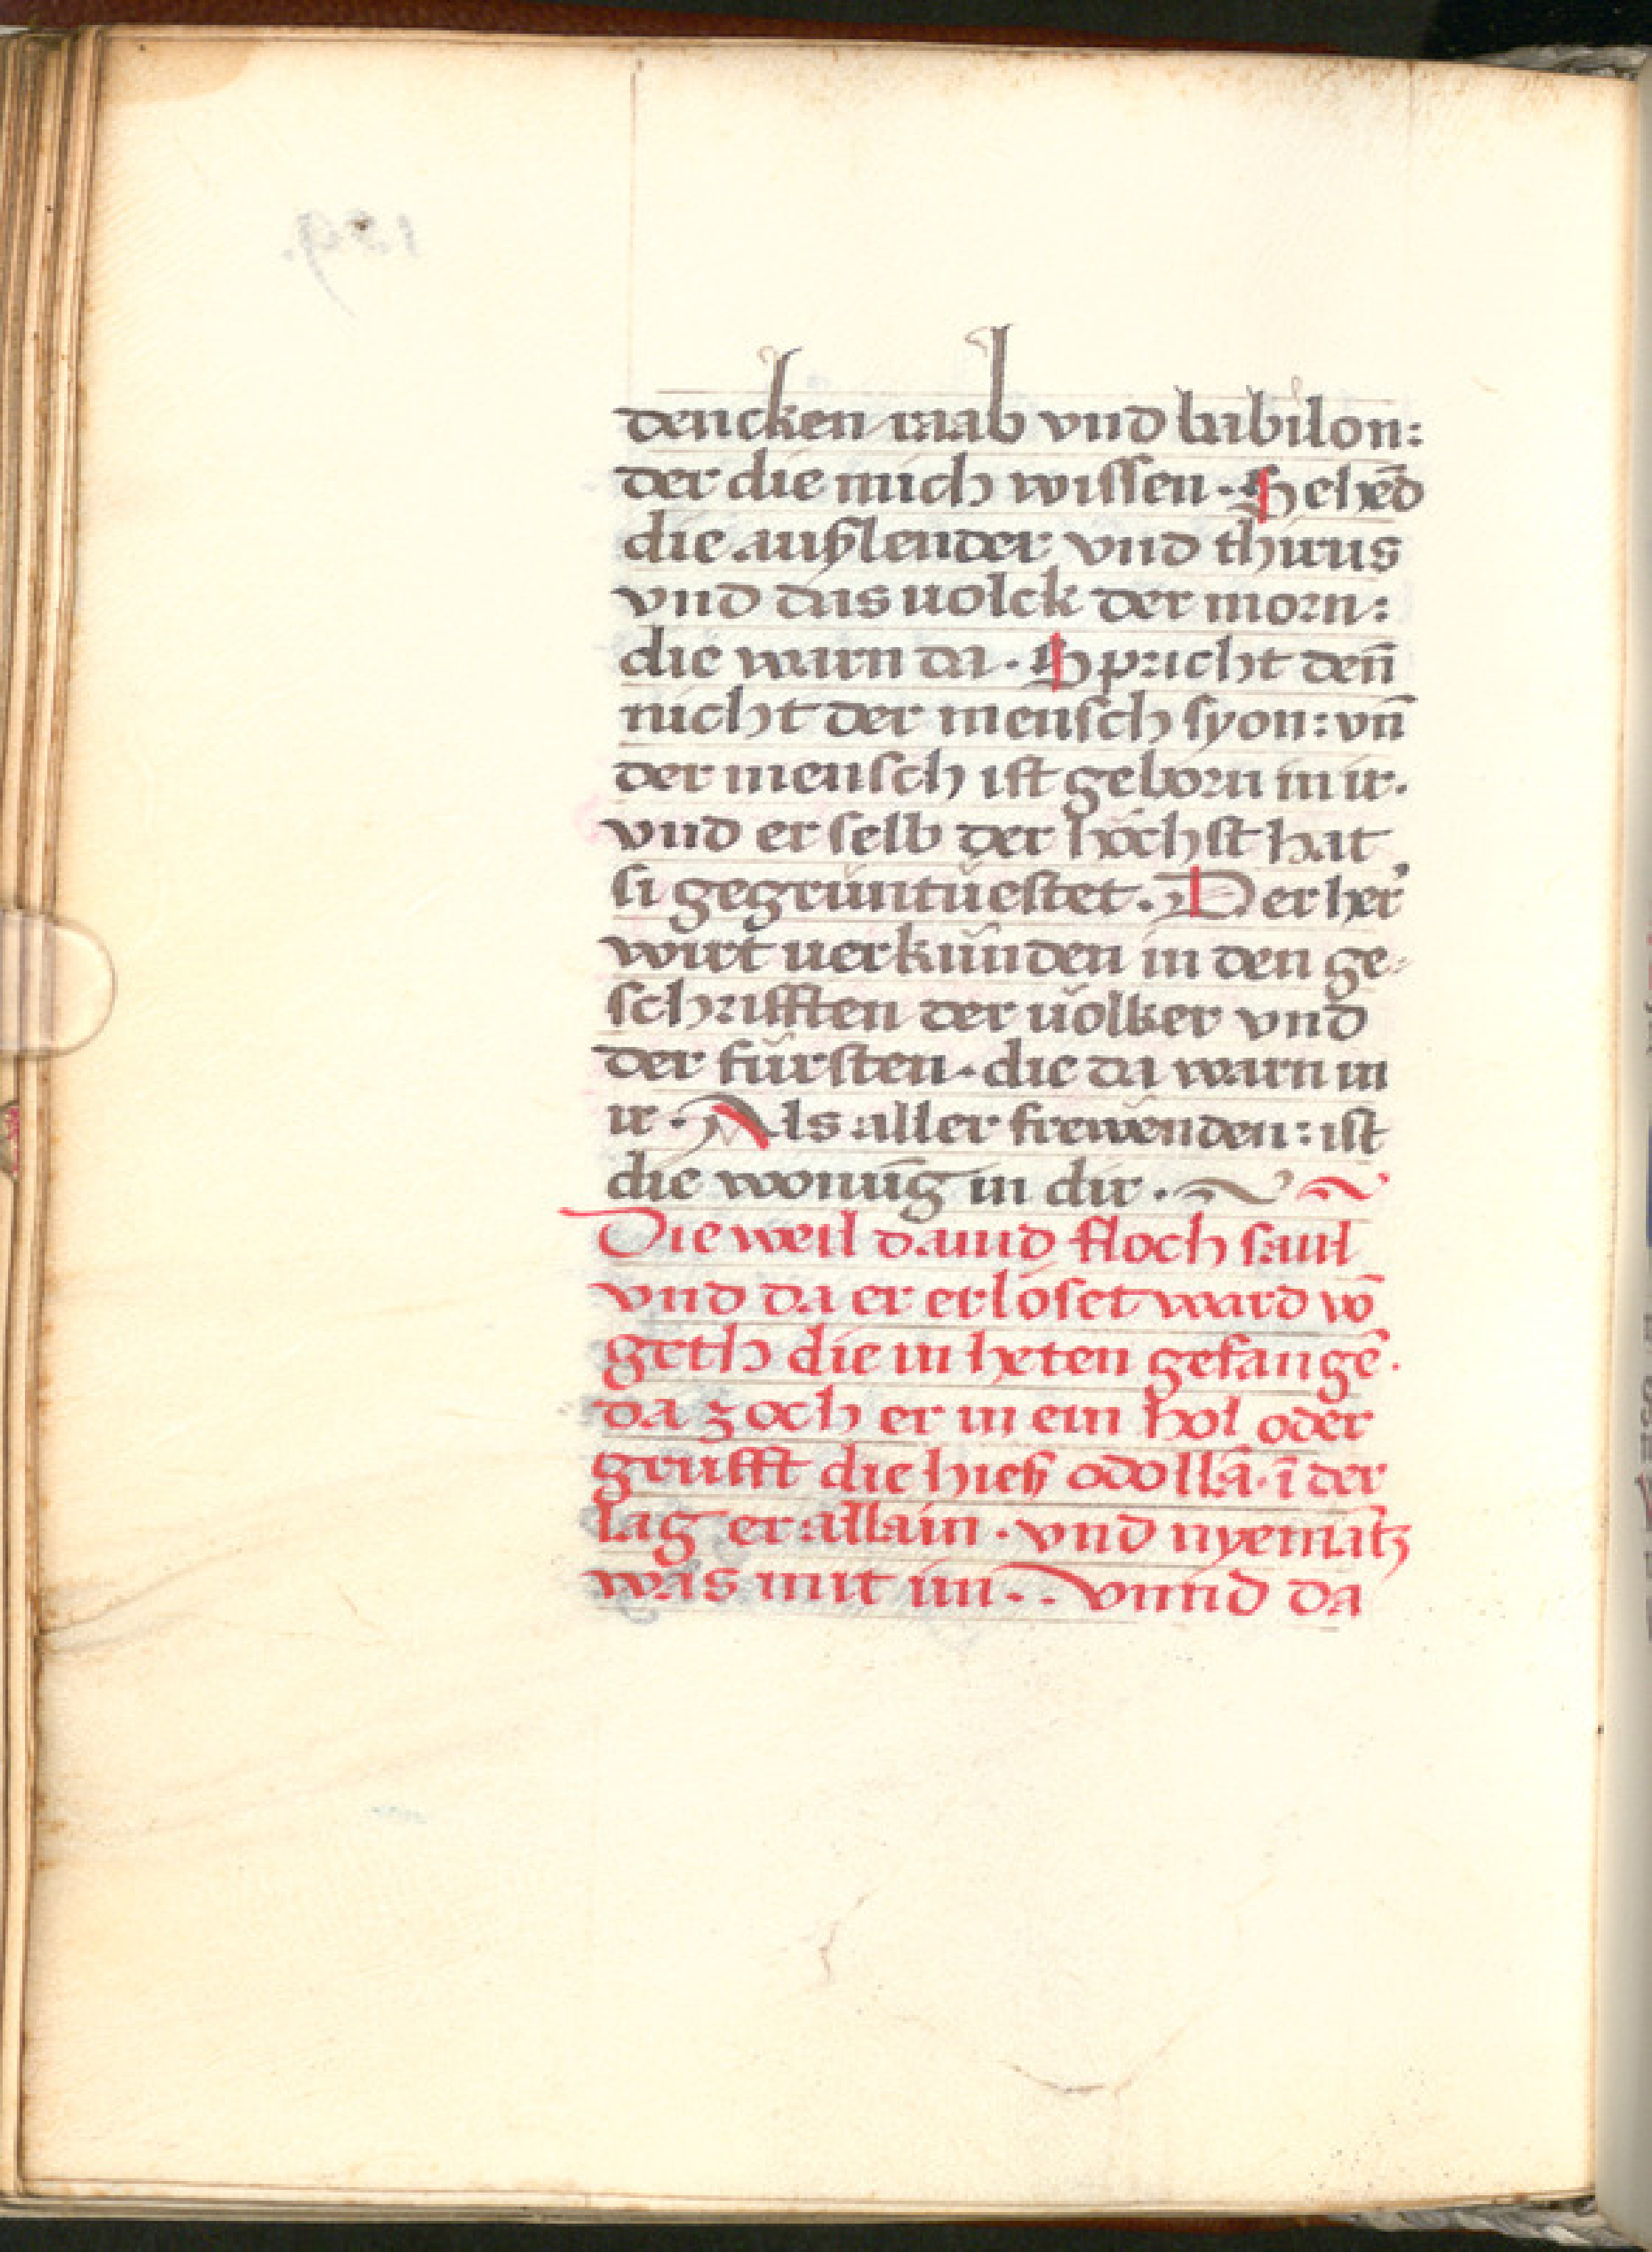 dencken raab vnd babilon:
der die mich wissen. Sehēd
die außlender vnd thirus
vnd das uolck der morn:
die warn da. Spricht deñ
nicht der mensch syon: vñ
der mensch ist geborn in ir.
vnd er selb der höchst hat
si gegrüntüestet. Der her̃
wirt uerkünden in den ge-
schrifften der uölker vnd
der fürsten. die da warn in
ir. Als aller frewenden: ist
die wonūg in dir.
Die weil dauid floch saul
vnd da er erlöset ward vō
geth die in heten gefangē.
da zoch er in ein hol oder
grufft die hieß odollā. ī der
lag er allain. vnd nyemātz
was mit im.. vnnd da